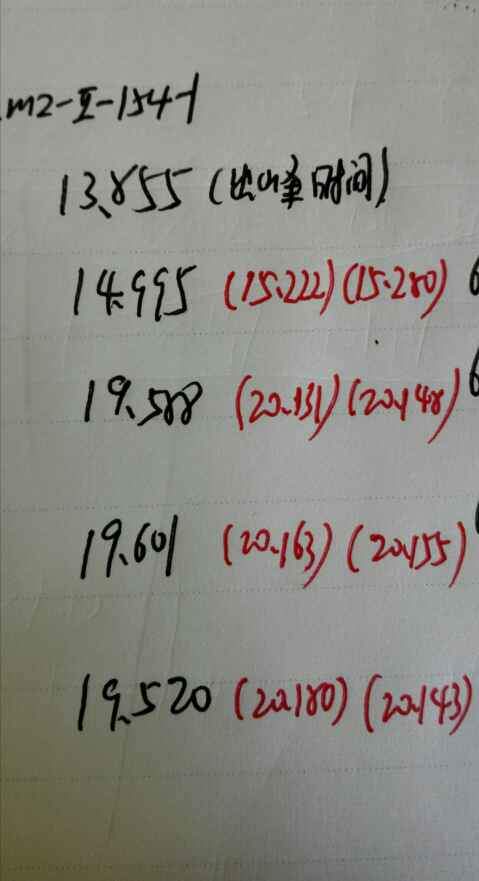 m2-II-154-1
13.855 (出峰时间)
14.995 (15.222) (15.280)
19.588 (20.131) (20.148)
19.601 (20.163) (20.155)
19.520 (20.180) (20.143)